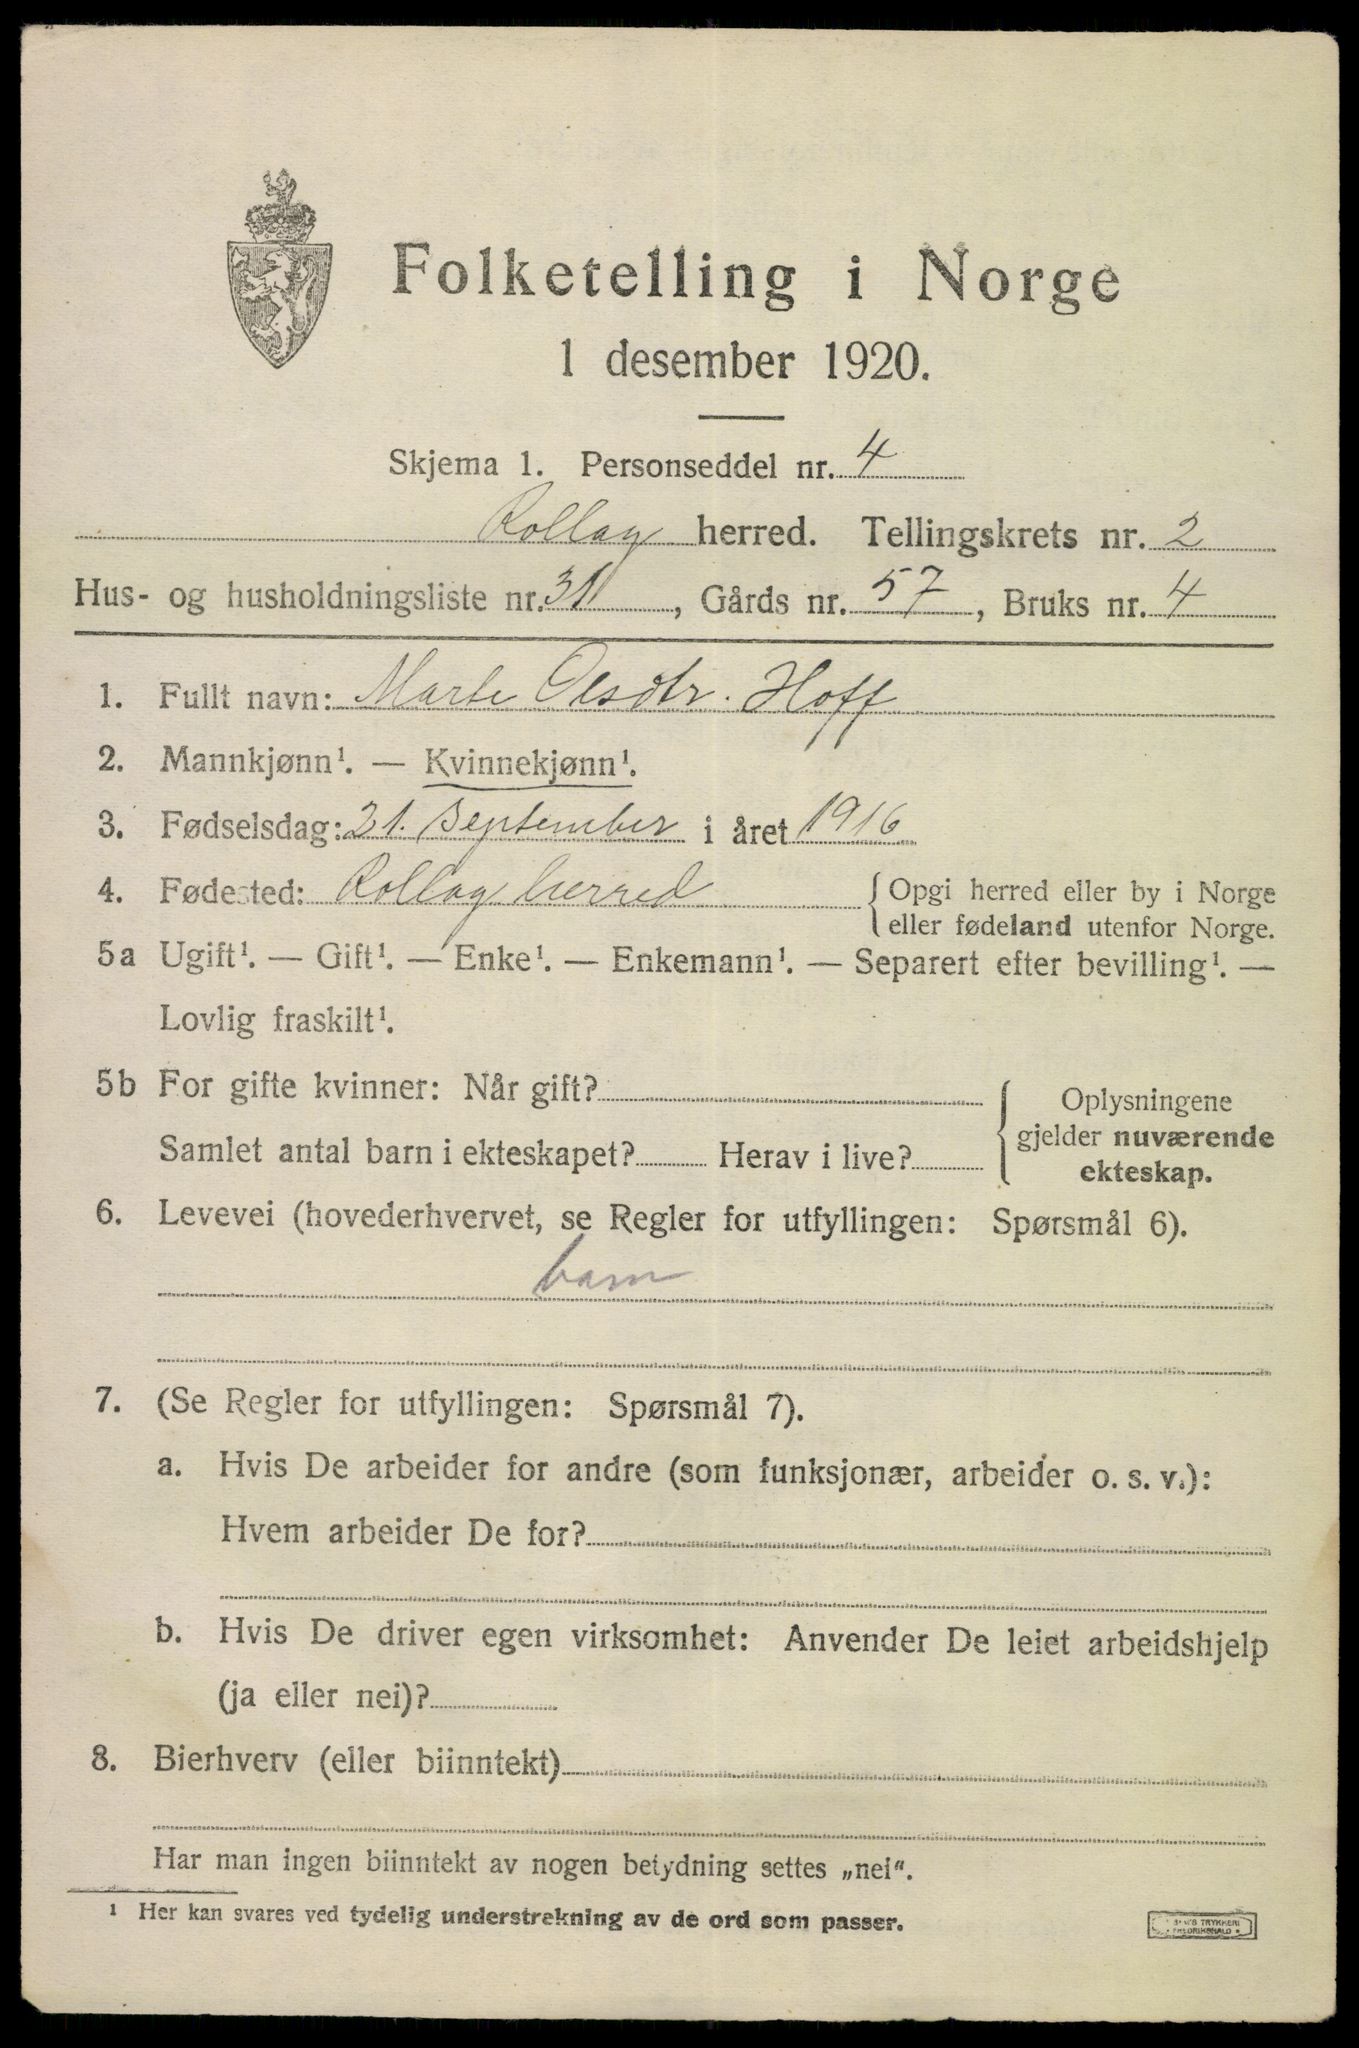 Folketelling i Norge
1 desember 1920.
Skjema 1. Personseddel nr. 4
Rollag herred. Tellingskrets nr. 2
Hus- og husholdningsliste nr. 31, Gårds nr. 57, Bruks nr. 4
1. Fullt navn: Marte Olsdtr. Hoff
2. Mannkjønn¹. — Kvinnekjønn¹.
3. Fødselsdag: 21. september i året 1916
4. Fødested: Rollag herred { Opgi herred eller by i Norge
eller fødeland utenfor Norge.
5a Ugift¹. — Gift¹. — Enke¹. — Enkemann¹. — Separert efter bevilling¹. —
Lovlig fraskilt¹.
5b For gifte kvinner: Når gift?
Samlet antal barn i ekteskapet? Herav i live?
{ Oplysningene
gjelder nuværende
ekteskap.
6. Levevei (hovederhvervet, se Regler for utfyllingen: Spørsmål 6).
barn
7. (Se Regler for utfyllingen: Spørsmål 7).
a. Hvis De arbeider for andre (som funksjonær, arbeider o. s. v.):
Hvem arbeider De for?
b. Hvis De driver egen virksomhet: Anvender De leiet arbeidshjelp
(ja eller nei)?
8. Bierhverv (eller biinntekt)
Har man ingen biinntekt av nogen betydning settes „nei".
¹ Her kan svares ved tydelig understrekning av de ord som passer.
TRYKKERI
FREDRIKSHALD